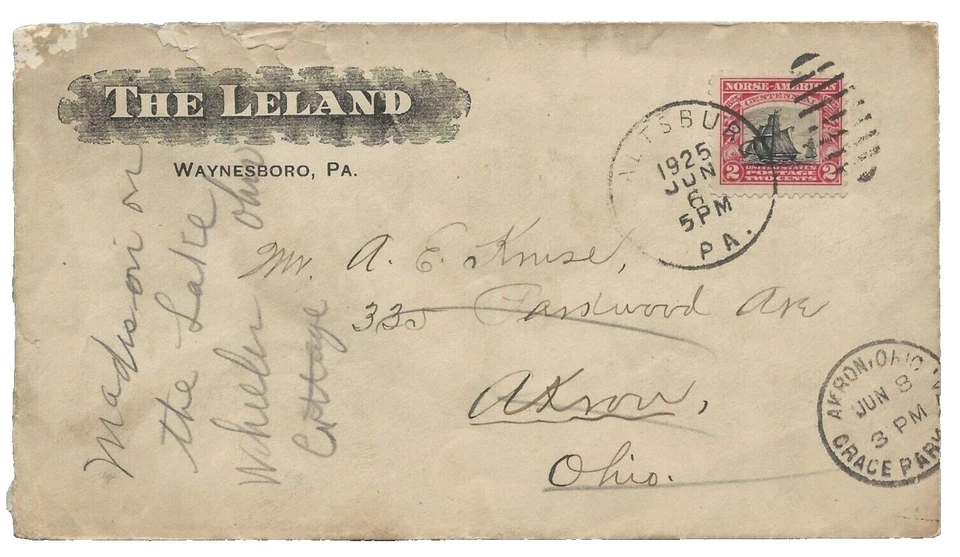 THE LELAND
WAYNESBORO, PA.
NORSE-AMERICAN
CENTENNIAL
2 UNITED STATES 2
POSTAGE
TWO CENTS
ITTSBUR
1925
JUN
6
5 PM
PA.
Mr. A. E. Kruse,
335 Parkwood Ave
Akron,
Ohio.
Madison on
the Lake Ohio
Wheeler
Cottage
AKRON, OHIO
JUN 8
3 PM
GRACE PARK